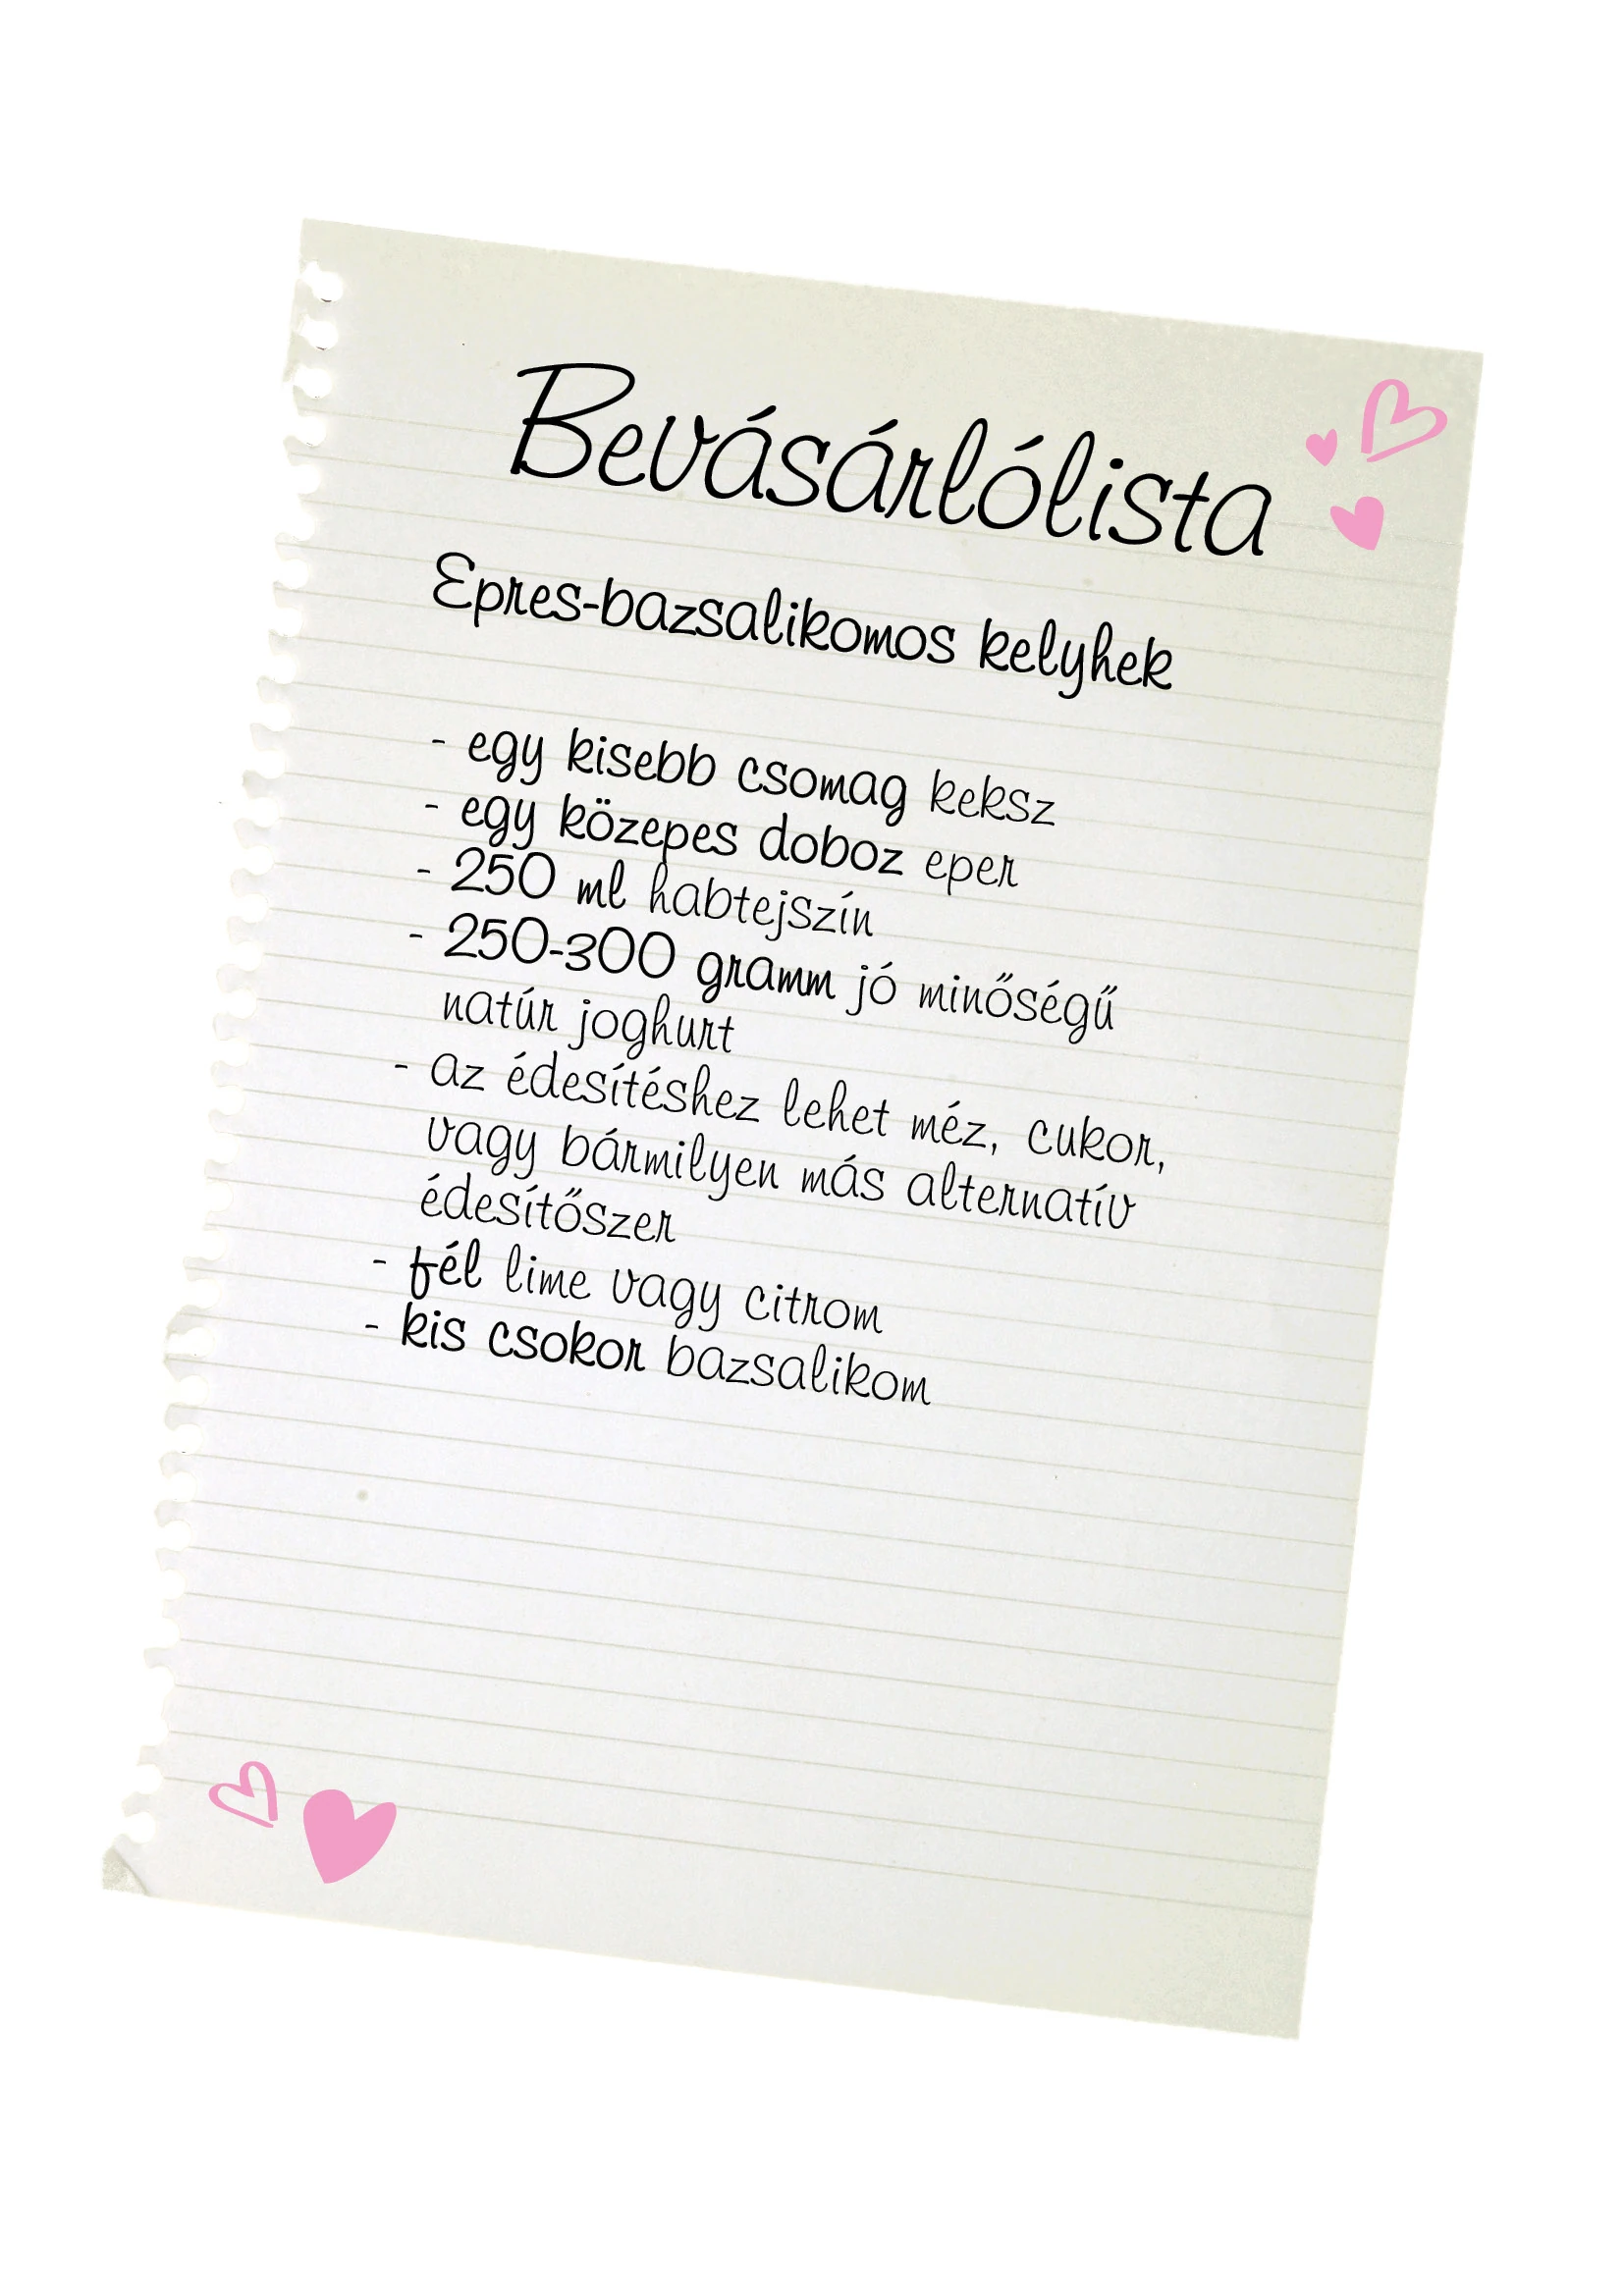 Bevásárlólista
Epres-bazsalikomos kelyhek
- egy kisebb csomag keksz
- egy közepes doboz eper
- 250 ml habtejszín
- 250-300 gramm jó minőségű
natúr joghurt
- az édesítéshez lehet méz, cukor,
vagy bármilyen más alternatív
édesítőszer
- fél lime vagy citrom
- kis csokor bazsalikom